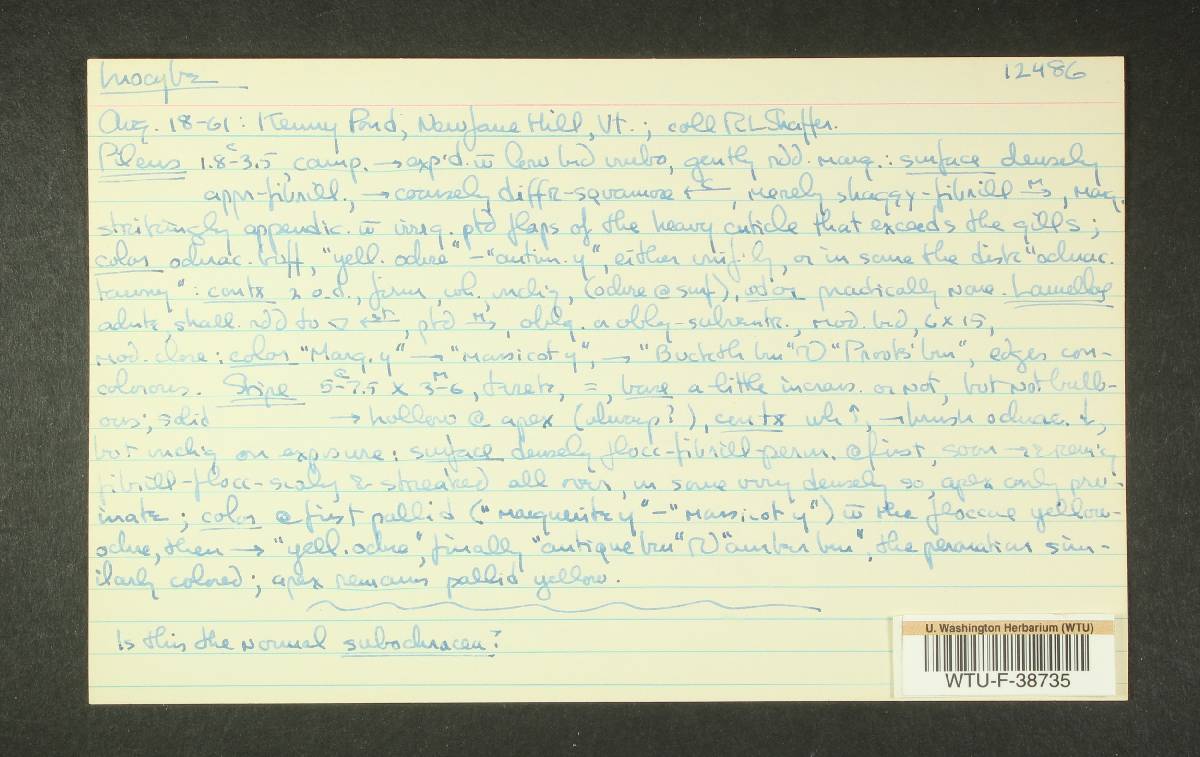 Inocybe 12486
Aug. 18-61: Kenny Pond, Newfane Hill, Vt.; coll RLShaffer.
Pileus 1.8-3.5 c, camp. → exp'd. w low bd umbo, gently rdd. marg.: surface densely
appr-fibrill., → coarsely diffr-squamose, merely shaggy-fibrill M, marg.
strikingly appendic. w irreg. ptd flaps of the heavy cuticle that exceeds the gills;
color ochrac. buff, "yell. ochre" - "antim. y", either unif'ly, or in some the disk "ochrac.
tawny": contx o.d., firm, wh. unchg, (ochre @ surf), odor practically none. Lamellae
adnate, shall. rdd to, ptd M, oblq. a oblq-subventr., mod. bd, 6 x 15,
mod. close: color "Marg. y" → "Massicot y", → "Buckth bn" "Prouts' bn", edges con-
colorous. Stipe 5-7.5 c x 3-6 M, terete, =, base a little increas. or not, but not bulb-
ous; solid → hollow @ apex (always?), contx wh ↑, → brnsh ochrac. ↓,
but unchg on exposure: surface densely flocc-fibrill-peron. @ first, soon →
fibrill-flocc-scaly & streaked all over, in some very densely so, apex only prui-
inate; color @ first pallid ("Marguerite y" - "Massicot y") w the floccae yellow-
ochre, then → "yell. ochre", finally "antique bn" "amber bn", the peronation sim-
ilarly colored; apex remains pallid yellow.
Is this the normal subochracea?
U. Washington Herbarium (WTU)
WTU-F-38735